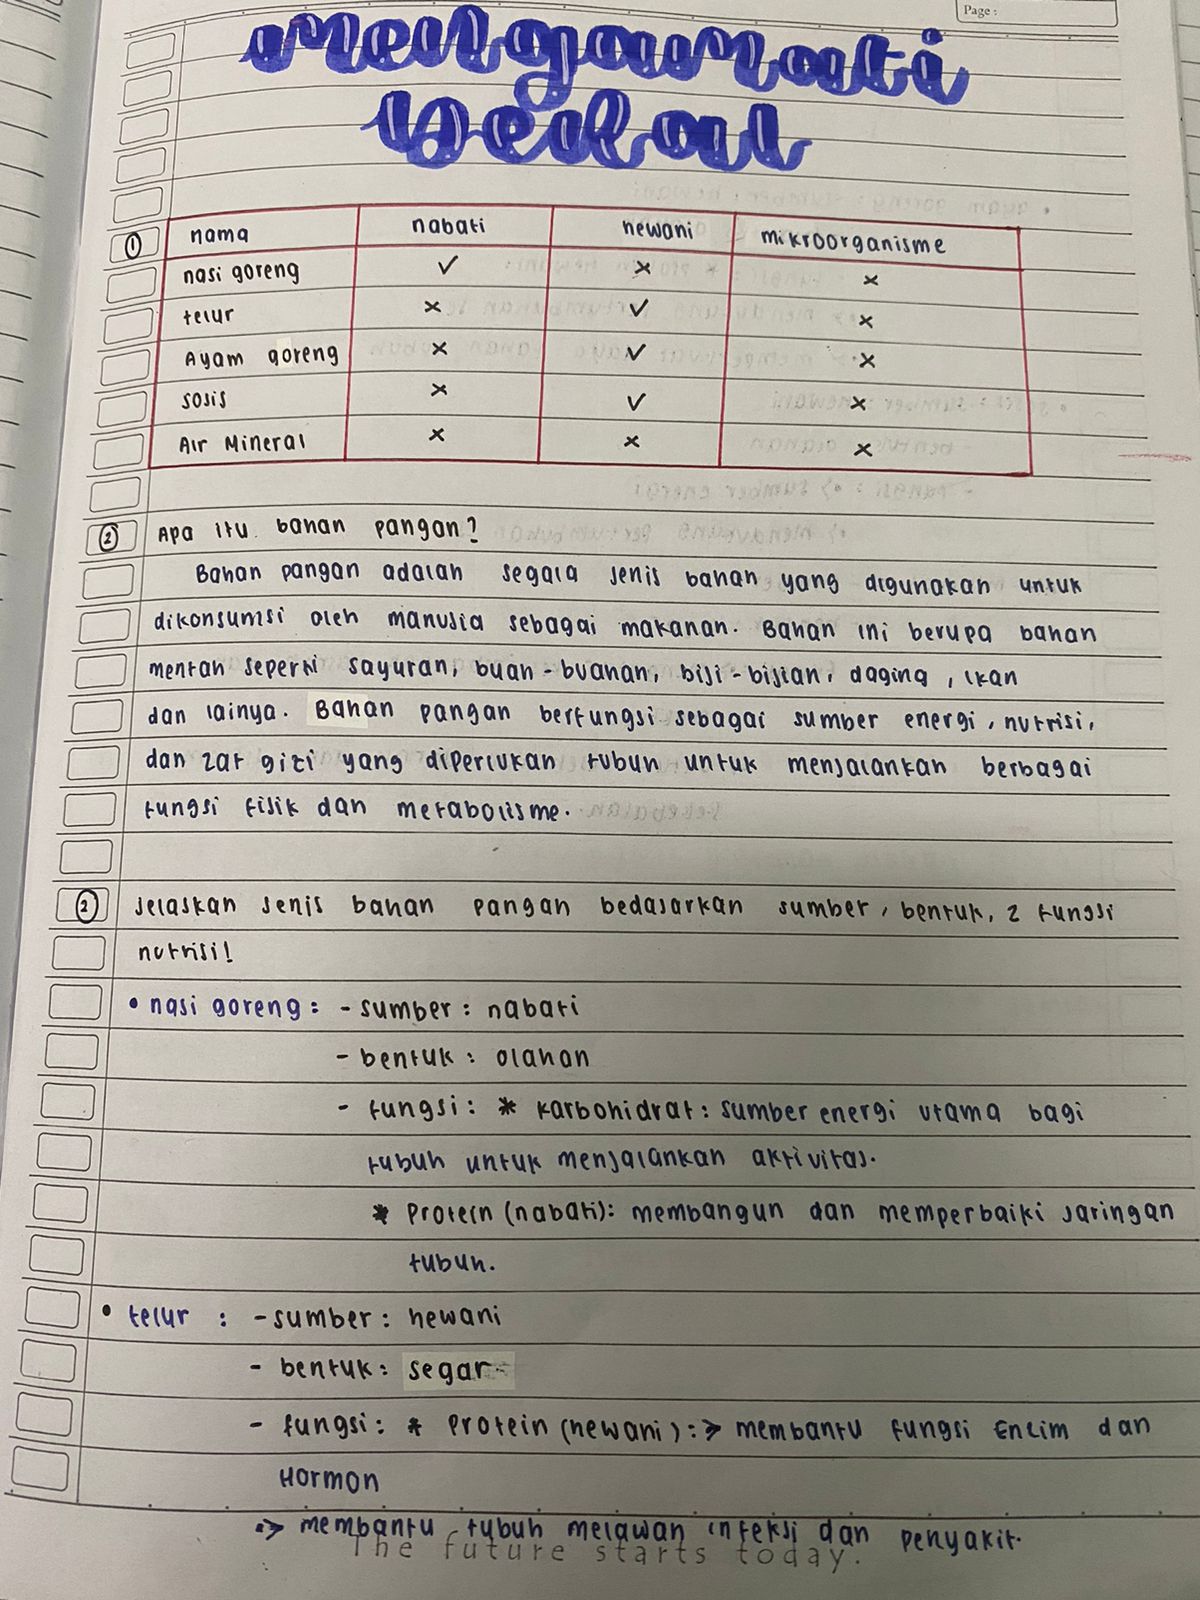 Page :
Mengamati
Bekal
① nama nabati hewani mikroorganisme
nasi goreng ✓ × ×
telur × ✓ ×
Ayam goreng × ✓ ×
sosis × ✓ ×
Air Mineral × × ×
② Apa itu bahan pangan?
Bahan pangan adalah segala jenis bahan yang digunakan untuk
dikonsumsi oleh manusia sebagai makanan. Bahan ini berupa bahan
mentah seperti sayuran, buah-buahan, biji-bijian, daging, ikan
dan lainya. Bahan pangan berfungsi sebagai sumber energi, nutrisi,
dan zat gizi yang diperlukan tubuh untuk menjalankan berbagai
fungsi fisik dan metabolisme.
② Jelaskan jenis bahan pangan bedasarkan sumber, bentuk, 2 fungsi
nutrisi!
• nasi goreng : - sumber : nabati
- bentuk : olahan
- fungsi : * karbohidrat : sumber energi utama bagi
tubuh untuk menjalankan aktivitas.
* Protein (nabati) : membangun dan memperbaiki jaringan
tubuh.
• telur : - sumber : hewani
- bentuk : segar
- fungsi : * Protein (hewani) : => membantu fungsi Enzim dan
Hormon
=> membantu tubuh melawan infeksi dan penyakit.
The future starts today.